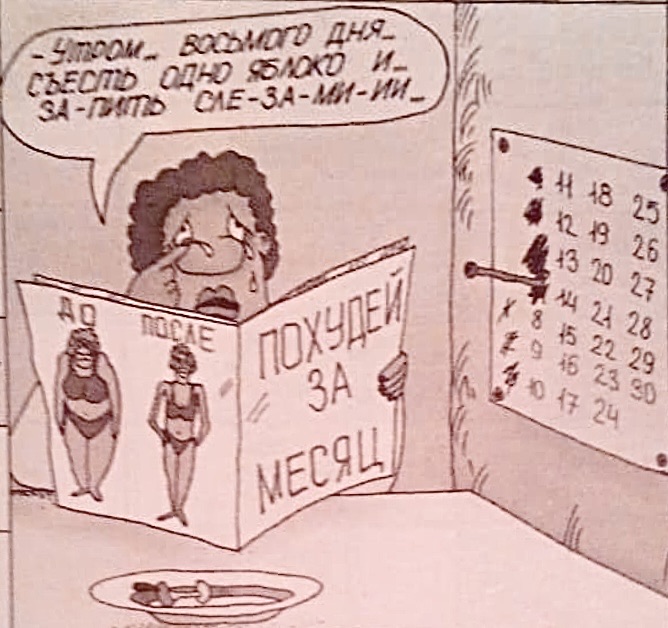 - УТРОМ... ВОСЬМОГО ДНЯ...
СЪЕСТЬ ОДНО ЯБЛОКО И...
ЗА-ПИТЬ СЛЕ-ЗА-МИ-ИИ...
ДО
ПОСЛЕ
ПОХУДЕЙ
ЗА
МЕСЯЦ
11 18 25
12 19 26
13 20 27
14 21 28
8 15 22 29
9 16 23 30
10 17 24